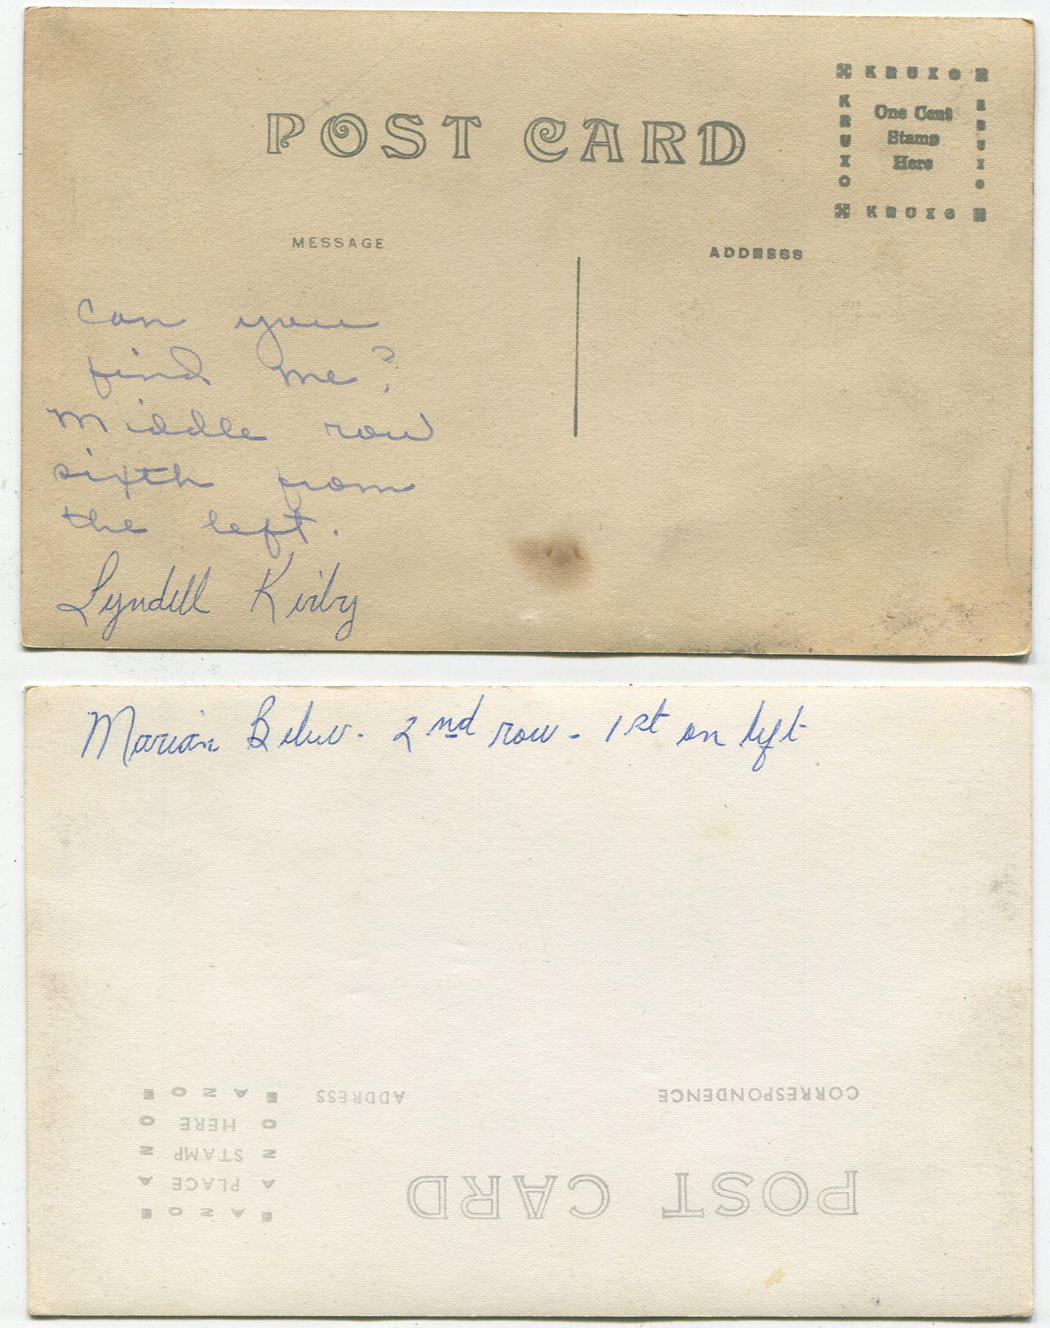 POST CARD
KRUXO
KRUXO
KRUXO
KRUXO
One Cent
Stamp
Here
MESSAGE
ADDRESS
Can you
find me?
Middle row
sixth from
the left.
Lyndell Kirby
Marian - 2nd row - 1st on left
POST CARD
CORRESPONDENCE
ADDRESS
PLACE
STAMP
HERE